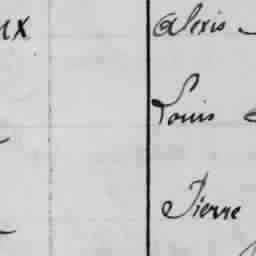 ux Alexis
Louis
Pierre